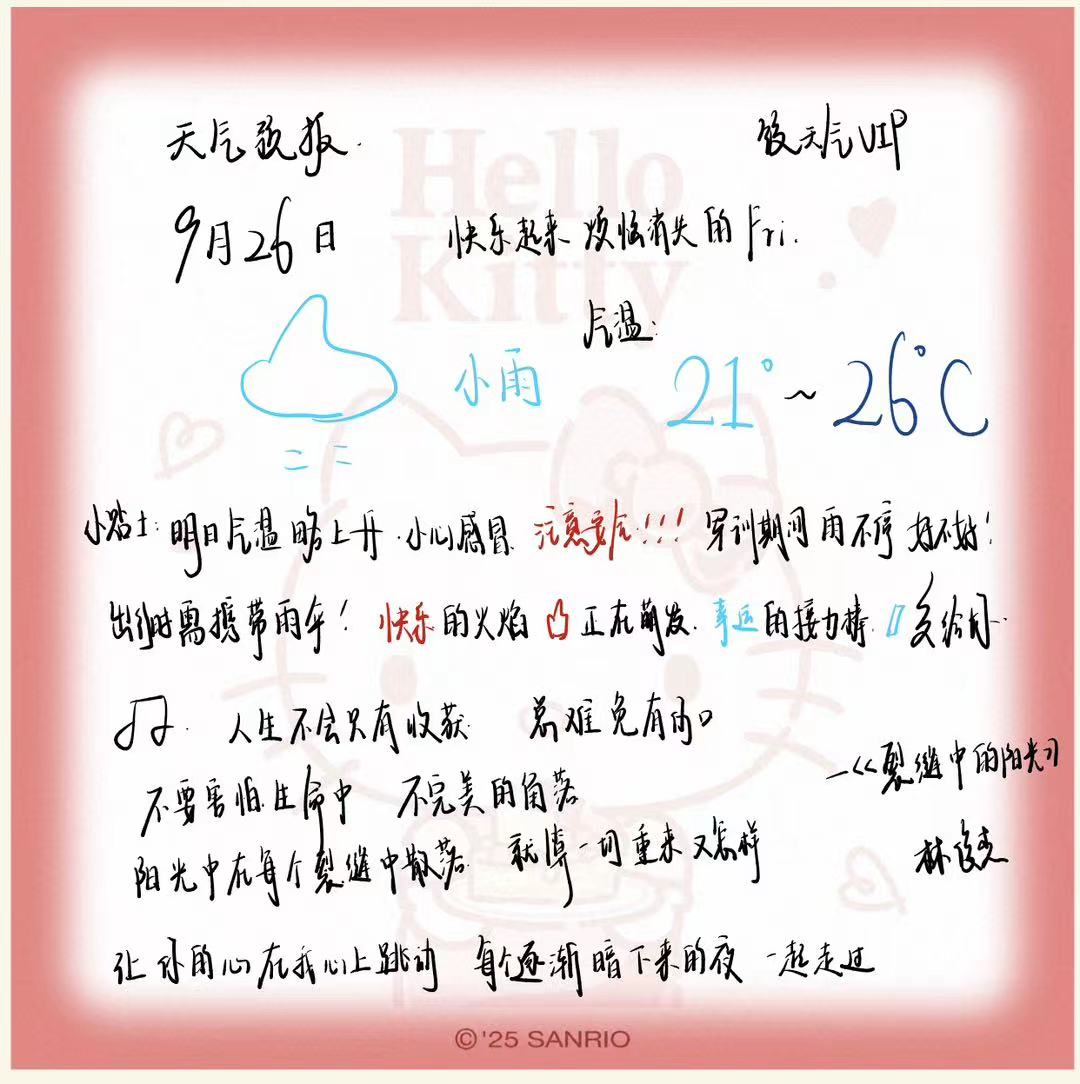 天气预报.
饭天气VIP
9月26日
快乐起来 烦恼消失的 Fri.
Hello
Kitty
气温:
小雨
21°~26°C
小贴士: 明日气温略上升.小心感冒 注意安全!!! 军训期间雨不停 好不好!
出行时需携带雨伞! 快乐的火焰 正在萌发. 幸运的接力棒 交给
人生不会只有收获 总难免有伤口
不要害怕生命中 不完美的角落
——《裂缝中的阳光》
阳光中在每个裂缝中散落 就算一切重来又怎样
林俊杰
让你的心在我心上跳动 每个逐渐暗下来的夜 一起走过
©'25 SANRIO